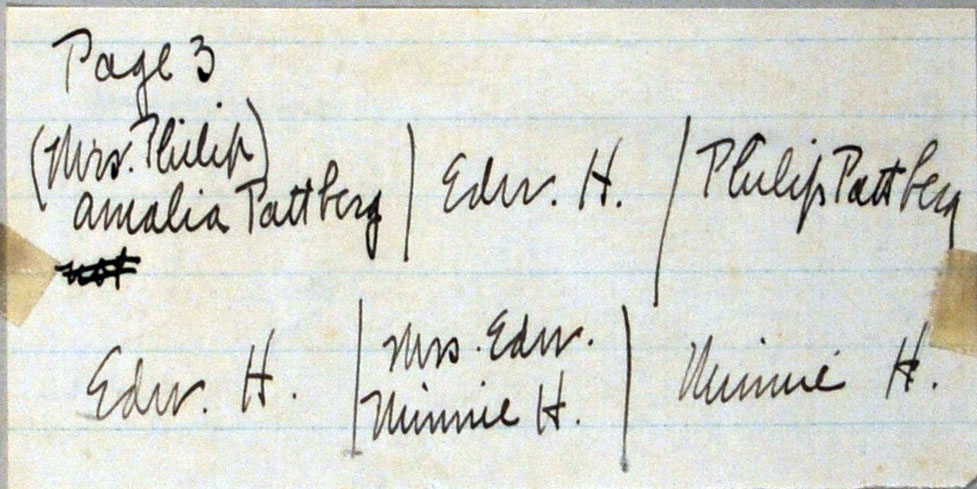 Page 3
(Mrs. Philip)
Amalia Pattberg | Edw. H. | Philip Pattberg
not
Edw. H. | Mrs. Edw. Minnie H. | Minnie H.